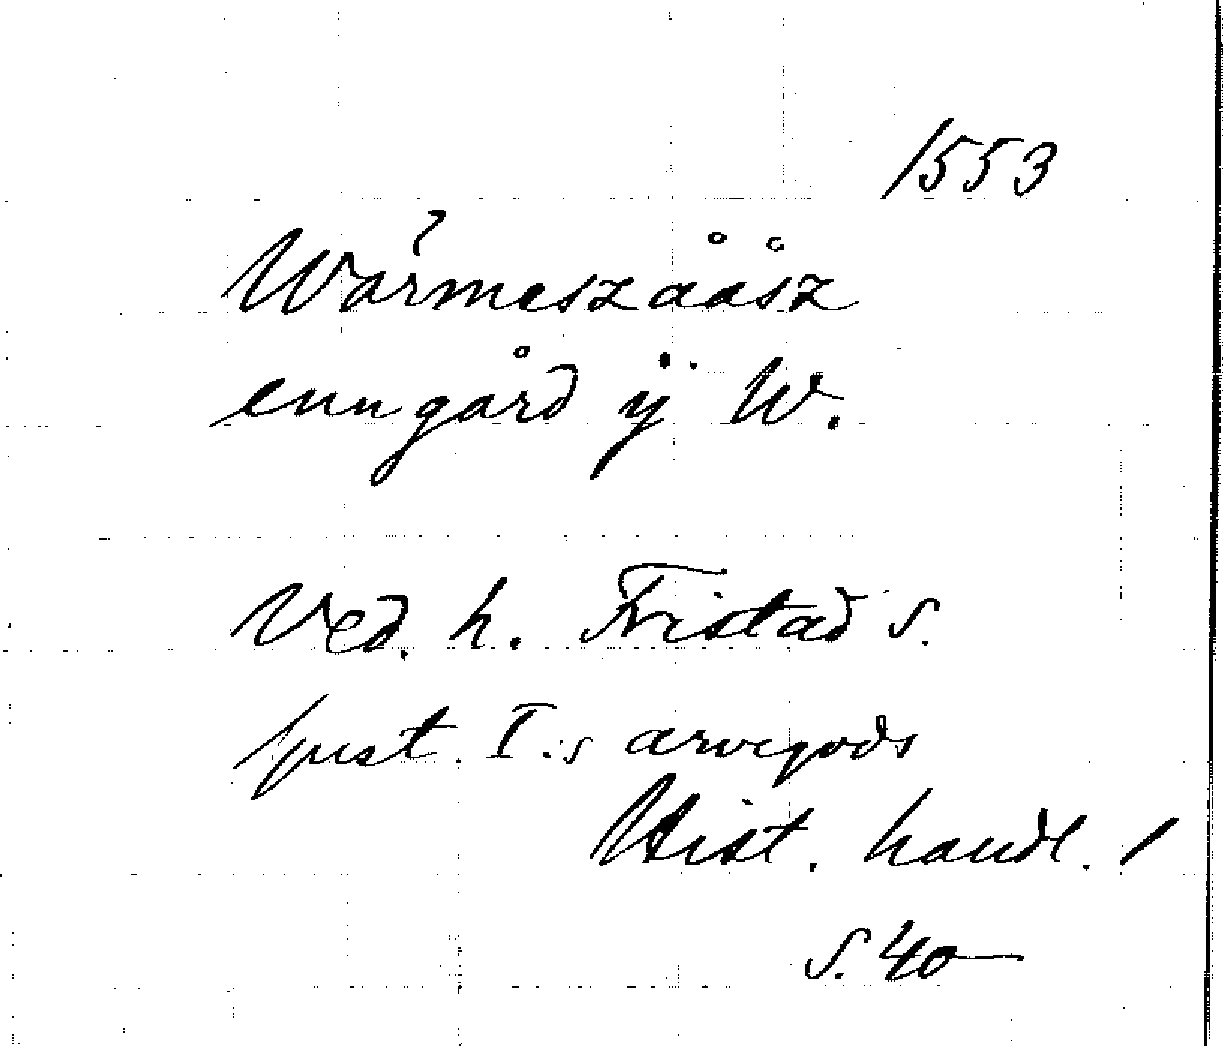 1553
Wårmeszååsz
enn gård ÿ W.
Ved. h. Fristad s.
Gust. I:s arvegods
Hist. handl. 1
s. 40